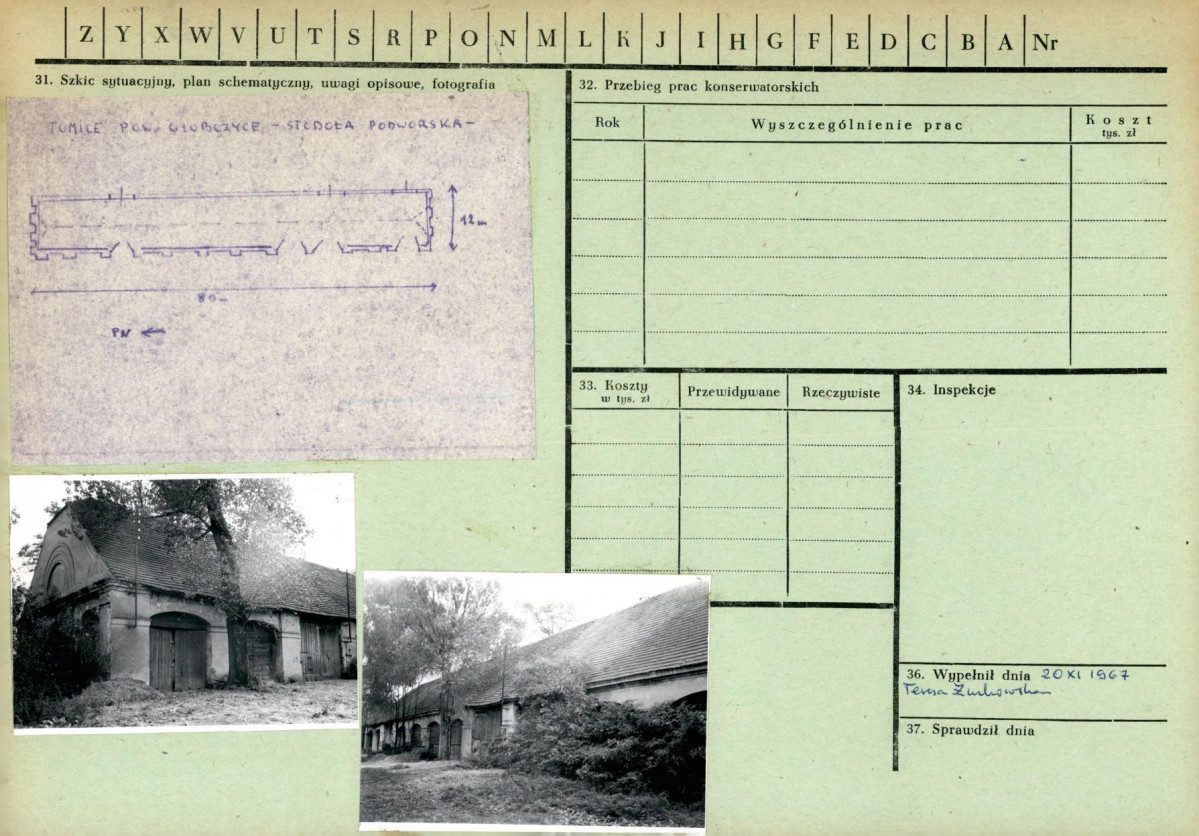 Z Y X W V U T S R P O N M L K J I H G F E D C B A Nr
31. Szkic sytuacyjny, plan schematyczny, uwagi opisowe, fotografia
TOMICE POW. GŁUBCZYCE - STODOŁA PODWORSKA -
12 m
80 m
PN
32. Przebieg prac konserwatorskich
Rok
Wyszczególnienie prac
Koszt
tys. zł
33. Koszty
w tys. zł
Przewidywane
Rzeczywiste
34. Inspekcje
36. Wypełnił dnia 20 XI 1967
Teresa Żurkowska
37. Sprawdził dnia